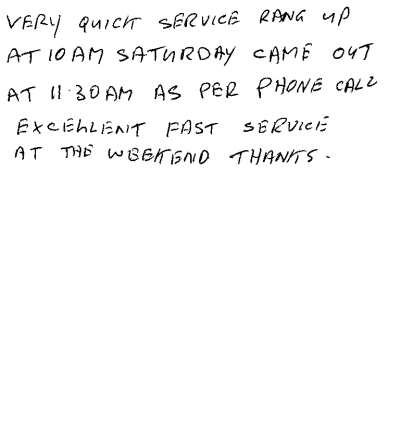 VERY QUICK SERVICE RANG UP
AT 10AM SATURDAY CAME OUT
AT 11·30AM AS PER PHONE CALL
EXCELLENT FAST SERVICE
AT THE WEEKEND THANKS.